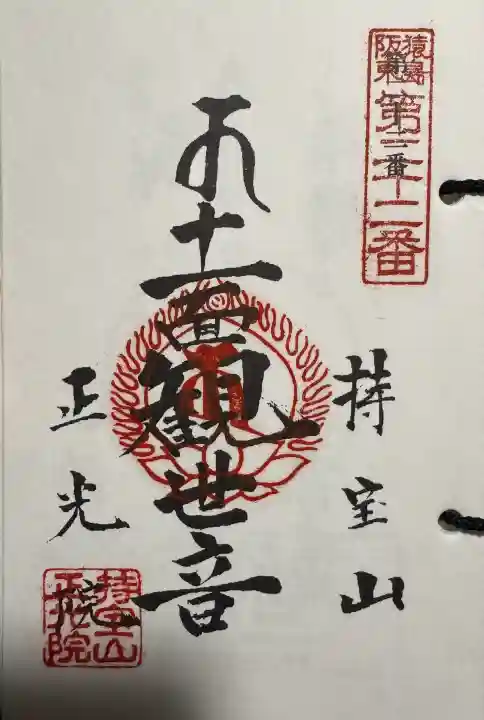 猿島
阪東
第三十二番
持宝山
十一面観世音
正光院
持宝山
正光院